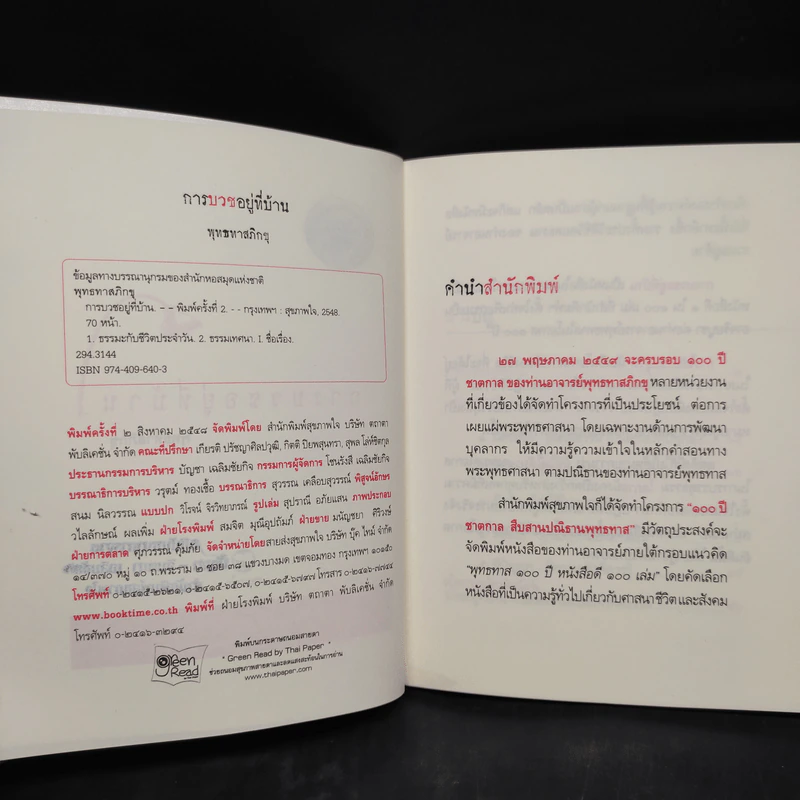 การบวชอยู่ที่บ้าน
พุทธทาสภิกขุ
ข้อมูลทางบรรณานุกรมของสำนักหอสมุดแห่งชาติ
พุทธทาสภิกขุ
การบวชอยู่ที่บ้าน. - - พิมพ์ครั้งที่ 2. - - กรุงเทพฯ : สุขภาพใจ, 2548.
70 หน้า.
1. ธรรมะกับชีวิตประจำวัน. 2. ธรรมเทศนา. I. ชื่อเรื่อง.
294.3144
ISBN 974-409-640-3
พิมพ์ครั้งที่ ๒ สิงหาคม ๒๕๔๘ จัดพิมพ์โดย สำนักพิมพ์สุขภาพใจ บริษัท ตถาตา
พับลิเคชั่น จำกัด คณะที่ปรึกษา เกียรติ ปรัชญาศิลปวุฒิ, กิตติ ปิยพสุนทรา, สุพล โล่ห์ชิตกุล
ประธานกรรมการบริหาร บัญชา เฉลิมชัยกิจ กรรมการผู้จัดการ โชนรังสี เฉลิมชัยกิจ
บรรณาธิการบริหาร วรุตม์ ทองเชื้อ บรรณาธิการ สุวรรณ เคลือบสุวรรณ์ พิสูจน์อักษร
สนม นิลวรรณ แบบปก วิโรจน์ จิรวิทยาภรณ์ รูปเล่ม สุปราณี อภัยแสน ภาพประกอบ
วไลลักษณ์ ผลเพิ่ม ฝ่ายโรงพิมพ์ สมจิต มุณีอุปถัมภ์ ฝ่ายขาย มนัญชยา ศิริวงษ์
ฝ่ายการตลาด ศุภวรรณ คุ้มภัย จัดจำหน่ายโดยสายส่งสุขภาพใจ บริษัท บุ๊ค ไทม์ จำกัด
๑๔/๓๗๐ หมู่ ๑๐ ถ.พระราม ๒ ซอย ๓๘ แขวงบางมด เขตจอมทอง กรุงเทพฯ ๑๐๑๕๐
โทรศัพท์ ๐-๒๔๑๕-๒๖๒๑, ๐-๒๔๑๕-๖๕๐๗, ๐-๒๔๑๕-๖๗๙๗ โทรสาร ๐-๒๔๑๖-๗๗๔๔
www.booktime.co.th พิมพ์ที่ ฝ่ายโรงพิมพ์ บริษัท ตถาตา พับลิเคชั่น จำกัด
โทรศัพท์ ๐-๒๔๑๖-๓๒๙๔
Green Read
พิมพ์บนกระดาษถนอมสายตา
" Green Read by Thai Paper "
ช่วยถนอมสุขภาพสายตาและลดแสงสะท้อนในการอ่าน
www.thaipaper.com
คำนำสำนักพิมพ์
๒๗ พฤษภาคม ๒๕๔๙ จะครบรอบ ๑๐๐ ปี
ชาตกาล ของท่านอาจารย์พุทธทาสภิกขุ หลายหน่วยงาน
ที่เกี่ยวข้องได้จัดทำโครงการที่เป็นประโยชน์ ต่อการ
เผยแผ่พระพุทธศาสนา โดยเฉพาะงานด้านการพัฒนา
บุคลากร ให้มีความรู้ความเข้าใจในหลักคำสอนทาง
พระพุทธศาสนา ตามปณิธานของท่านอาจารย์พุทธทาส
สำนักพิมพ์สุขภาพใจก็ได้จัดทำโครงการ "๑๐๐ ปี
ชาตกาล สืบสานปณิธานพุทธทาส" มีวัตถุประสงค์จะ
จัดพิมพ์หนังสือของท่านอาจารย์ภายใต้กรอบแนวคิด
"พุทธทาส ๑๐๐ ปี หนังสือดี ๑๐๐ เล่ม" โดยคัดเลือก
หนังสือที่เป็นความรู้ทั่วไปเกี่ยวกับศาสนา ชีวิต และสังคม